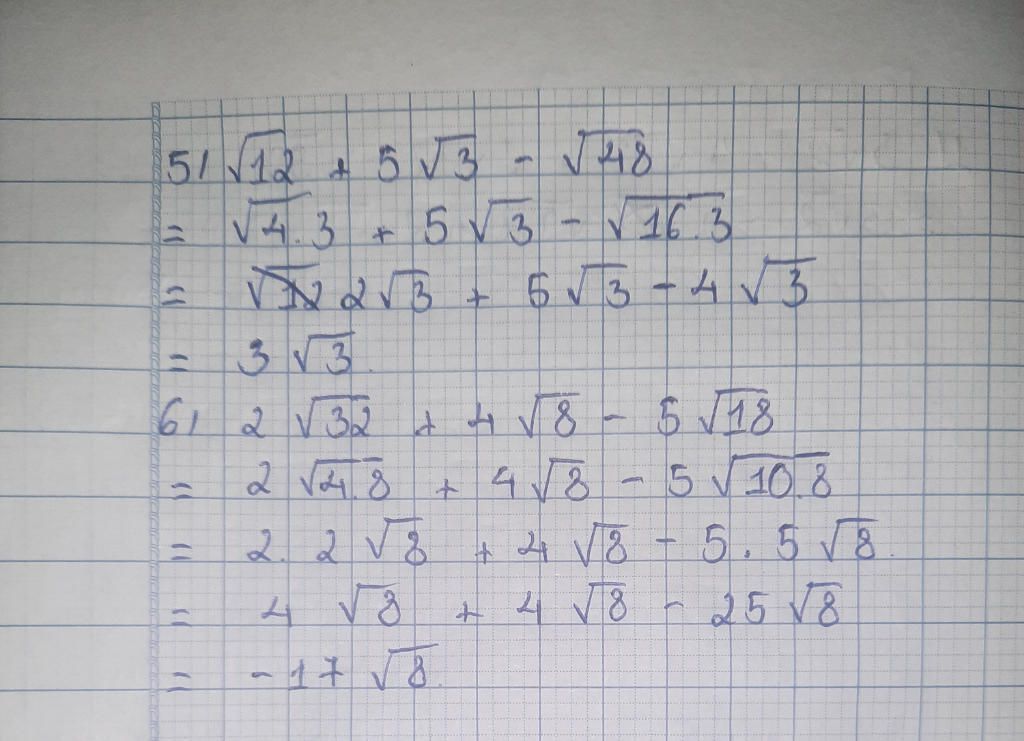 5/ √12 + 5√3 - √48
= √4.3 + 5√3 - √16.3
= √12 2√3 + 5√3 - 4√3
= 3√3.
6/ 2√32 + 4√8 - 5√18
= 2√4.8 + 4√8 - 5√10.8
= 2. 2√8 + 4√8 - 5. 5√8.
= 4√8 + 4√8 - 25√8
= -17√8.